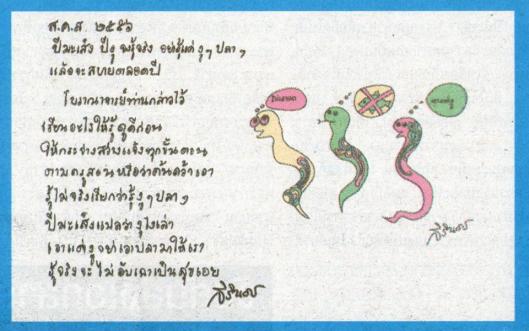 ส.ค.ส. ๒๕๕๖
ปีมะเส็ง ปีงู พึงรู้จริง อย่ารู้แค่ งูๆ ปลาๆ
แล้วจะสบายตลอดปี
โบราณาจารย์ท่านกล่าวไว้
เรียนอะไรให้รู้ดูดีก่อน
ให้กระจ่างสว่างแจ้งทุกขั้นตอน
ตามครูสอนหรือว่าค้นคว้าเอา
รู้ไม่จริงเรียกว่ารู้งูๆ ปลาๆ
ปีมะเส็งแปลว่างูไงเล่า
เอาแต่งูอย่าเอาปลามาให้เรา
รู้จริงจะไม่อับเฉาเป็นสุขเอย
สิรินธร
สิรินธร